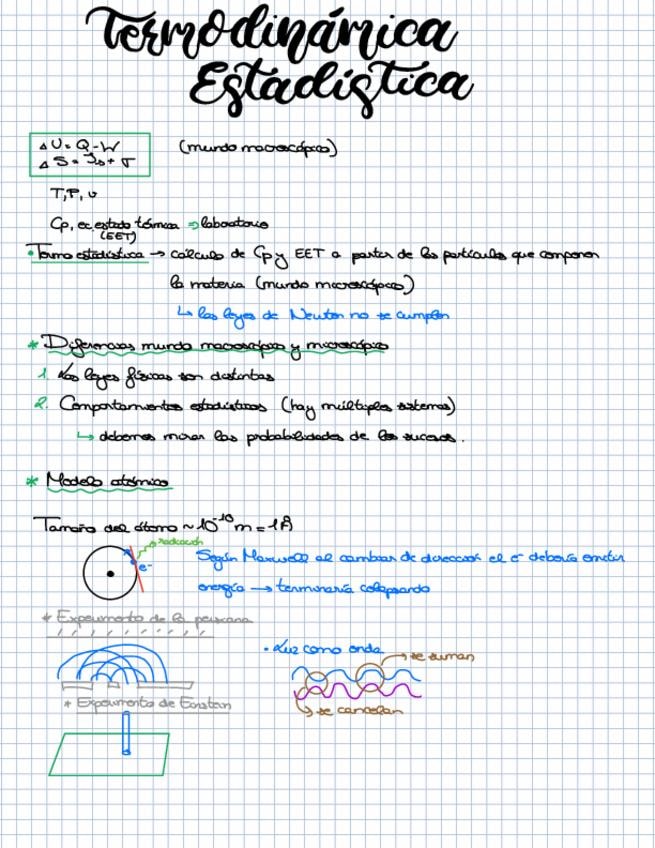 Termodinámica
Estadística
ΔU = Q - W (mundo macroscópico)
ΔS = Js + σ
T, P, v
Cp, ec. estado térmica ⇒ laboratorio
(EET)
• Termo estadística → cálculo de Cp y EET a partir de las partículas que componen
la materia (mundo microscópico)
↳ las leyes de Newton no se cumplen
* Diferencias mundo macroscópico y microscópico
1. Las leyes físicas son distintas
2. Comportamientos estadísticos (hay múltiples sistemas)
↳ debemos mirar las probabilidades de los sucesos.
* Modelo atómico
Tamaño del átomo ~ 10⁻¹⁰ m = 1 Å
radiación
e⁻
Según Maxwell al cambiar de dirección el e⁻ debería emitir
energía → terminaría colapsando
* Experimento de la persiana
• Luz como onda
→ se suman
↳ se cancelan
* Experimento de Einstein